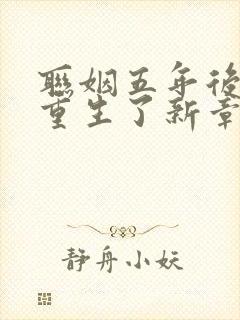 聯姻五年後
重生了新章
静舟小妖